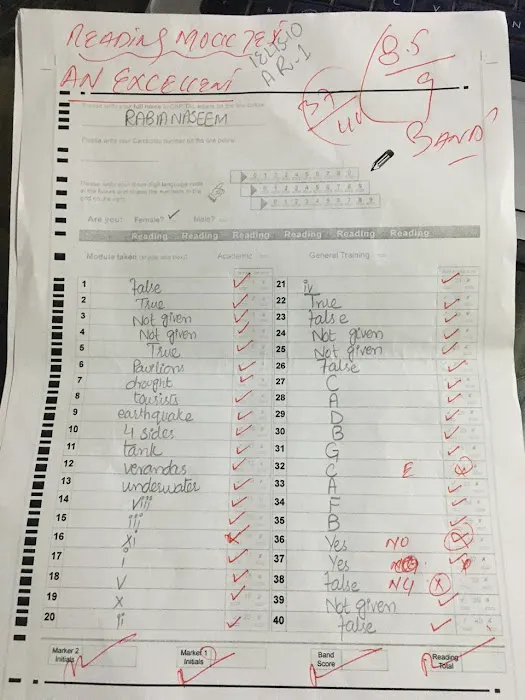 READING MOCK TEST
AN EXCELLENT
IELTS 10
AR-1
37/40
8.5/9
BAND
Please write your full name in CAPITAL letters on the line below:
RABIA NASEEM
Please write your Candidate number on the line below:
0 1 2 3 4 5 6 7 8 9
0 1 2 3 4 5 6 7 8 9
0 1 2 3 4 5 6 7 8 9
Are you: Female? ✓ Male?
Reading Reading Reading Reading Reading Reading
Module taken Academic General Training
1 False
2 True
3 Not given
4 Not given
5 True
6 Pavilions
7 drought
8 tourists
9 earthquake
10 4 sides
11 tank
12 verandas
13 underwater
14 viii
15 iii
16 xi
17 i
18 v
19 x
20 ii
21 iv
22 True
23 False
24 Not given
25 Not given
26 False
27 C
28 A
29 D
30 B
31 G
32 C E
33 A
34 F
35 B
36 Yes NO
37 Yes
38 False NG
39 Not given
40 False
Marker 2 Initials
Marker 1 Initials
Band Score
Reading Total